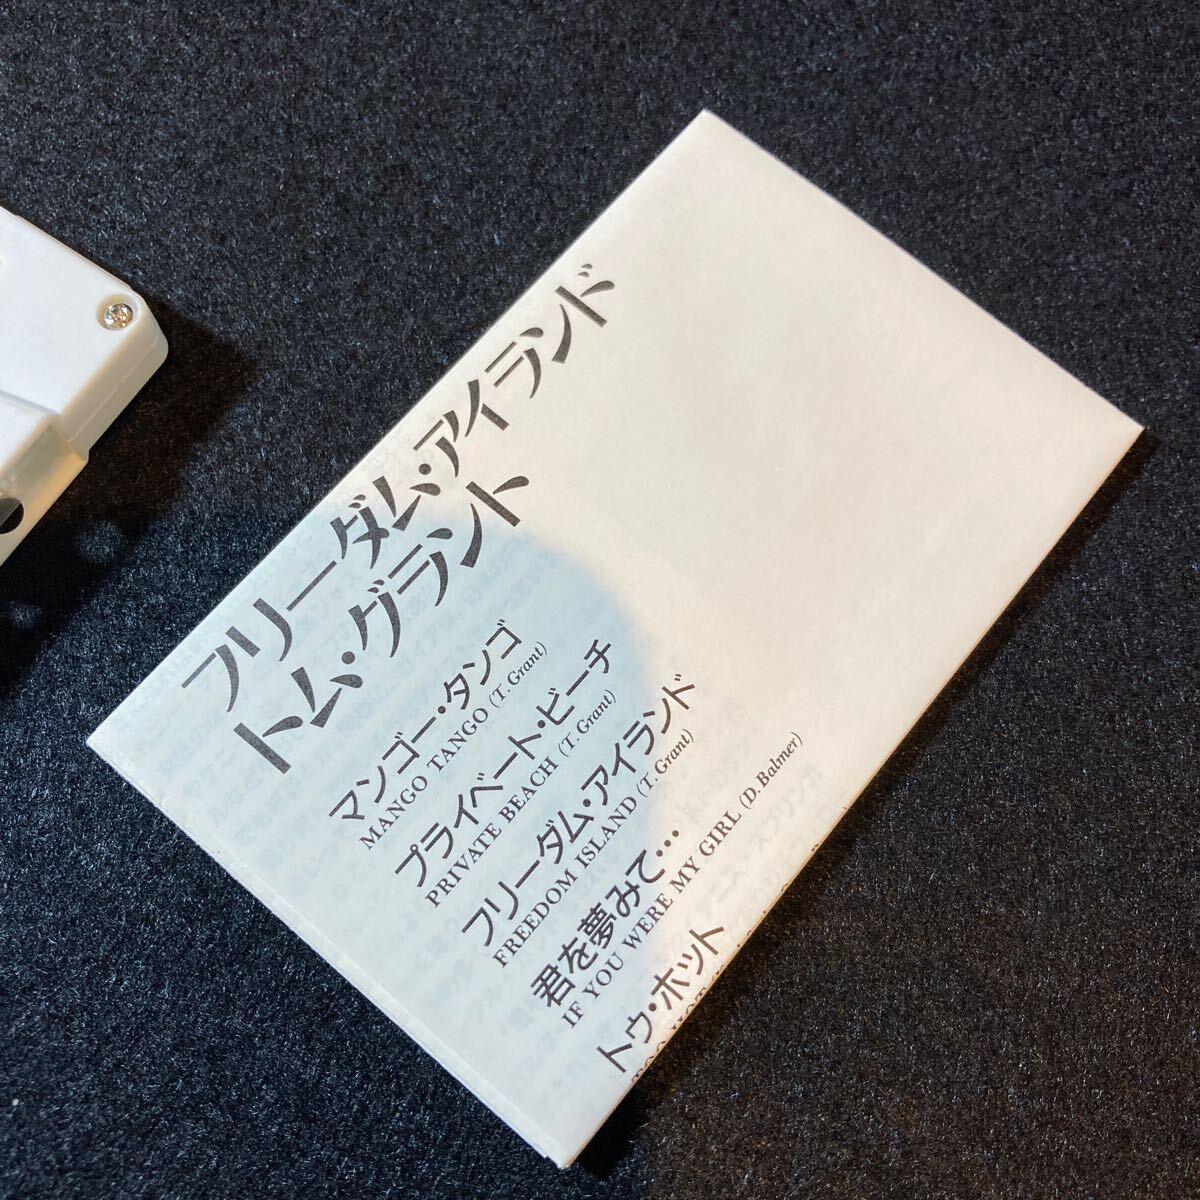 フリーダム・アイランド
トム・グラント
マンゴー・タンゴ
MANGO TANGO (T. Grant)
プライベート・ビーチ
PRIVATE BEACH (T. Grant)
フリーダム・アイランド
FREEDOM ISLAND (T. Grant)
君を夢みて…
IF YOU WERE MY GIRL (D. Balmer)
トゥ・ホット